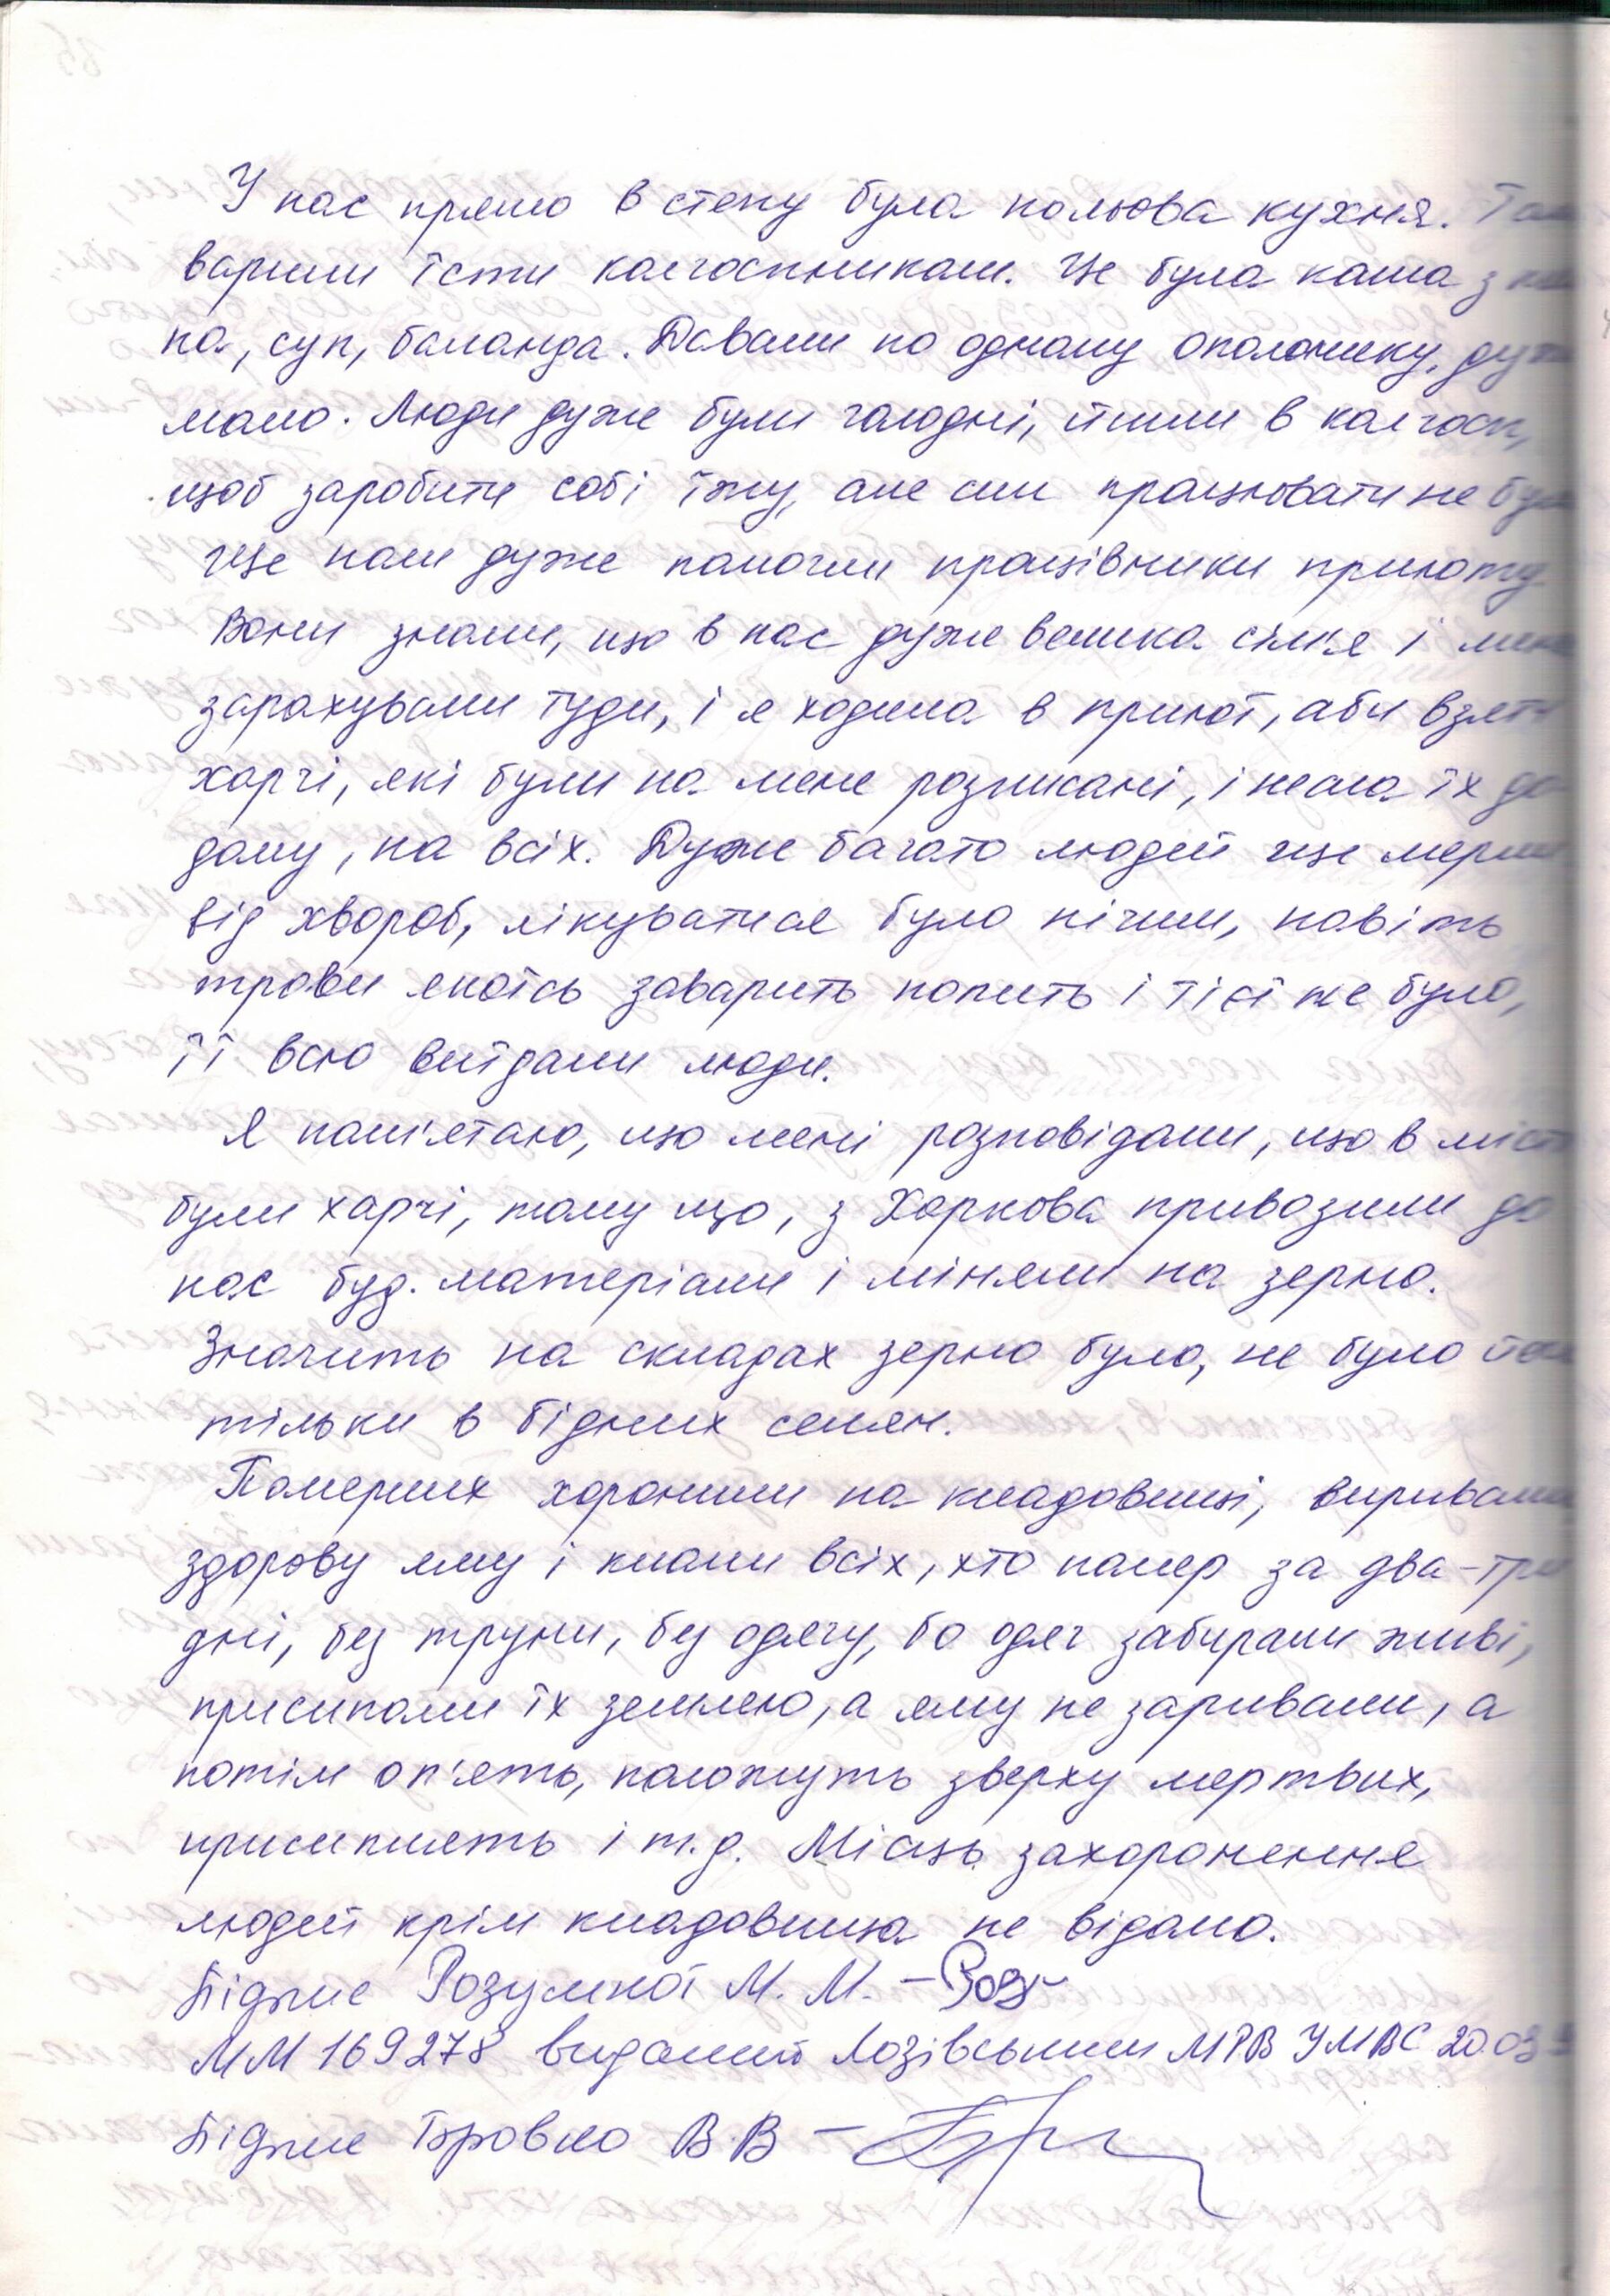 У нас прямо в степу була польова кухня. Там
варили їсти колгоспникам. Це була каша з
на, суп, баланда. Давали по одному ополонику, дуже
мало. Люди дуже були голодні, йшли в колгосп,
щоб заробити собі їжу, але сил працювати не було
Ще нам дуже помогли працівники приюту
Вони знали, що в нас дуже велика сім'я і мене
зарахували туди, і я ходила в приют, аби взяти
харчі, які були на мене розписані, і несла їх до
дому, на всіх. Дуже багато людей ще мерли
від хвороб, лікуватися було нічим, навіть
трави якоїсь заварить попить і тієї не було,
її всю виїдали люди.
Я пам'ятаю, що мені розповідали, що в місті
були харчі, тому що, з Харкова привозили до
нас буд. матеріали і міняли на зерно.
Значить на складах зерно було, не було його
тільки в бідних селян.
Померших хоронили на кладовищі, виривали
здорову яму і клали всіх, хто помер за два-три
дні, без труни, без одягу, бо одяг забирали живі,
присипали їх землею, а яму не заривали, а
потім оп'ять, положуть зверху мертвих,
присиплять і т.д. Місць захоронення
людей крім кладовища не відомо.
Підпис Розумної М. М. – Роз
ММ 169278 виданий Лозівським МРВ УМВС 20.03
Підпис Бровко В.В –